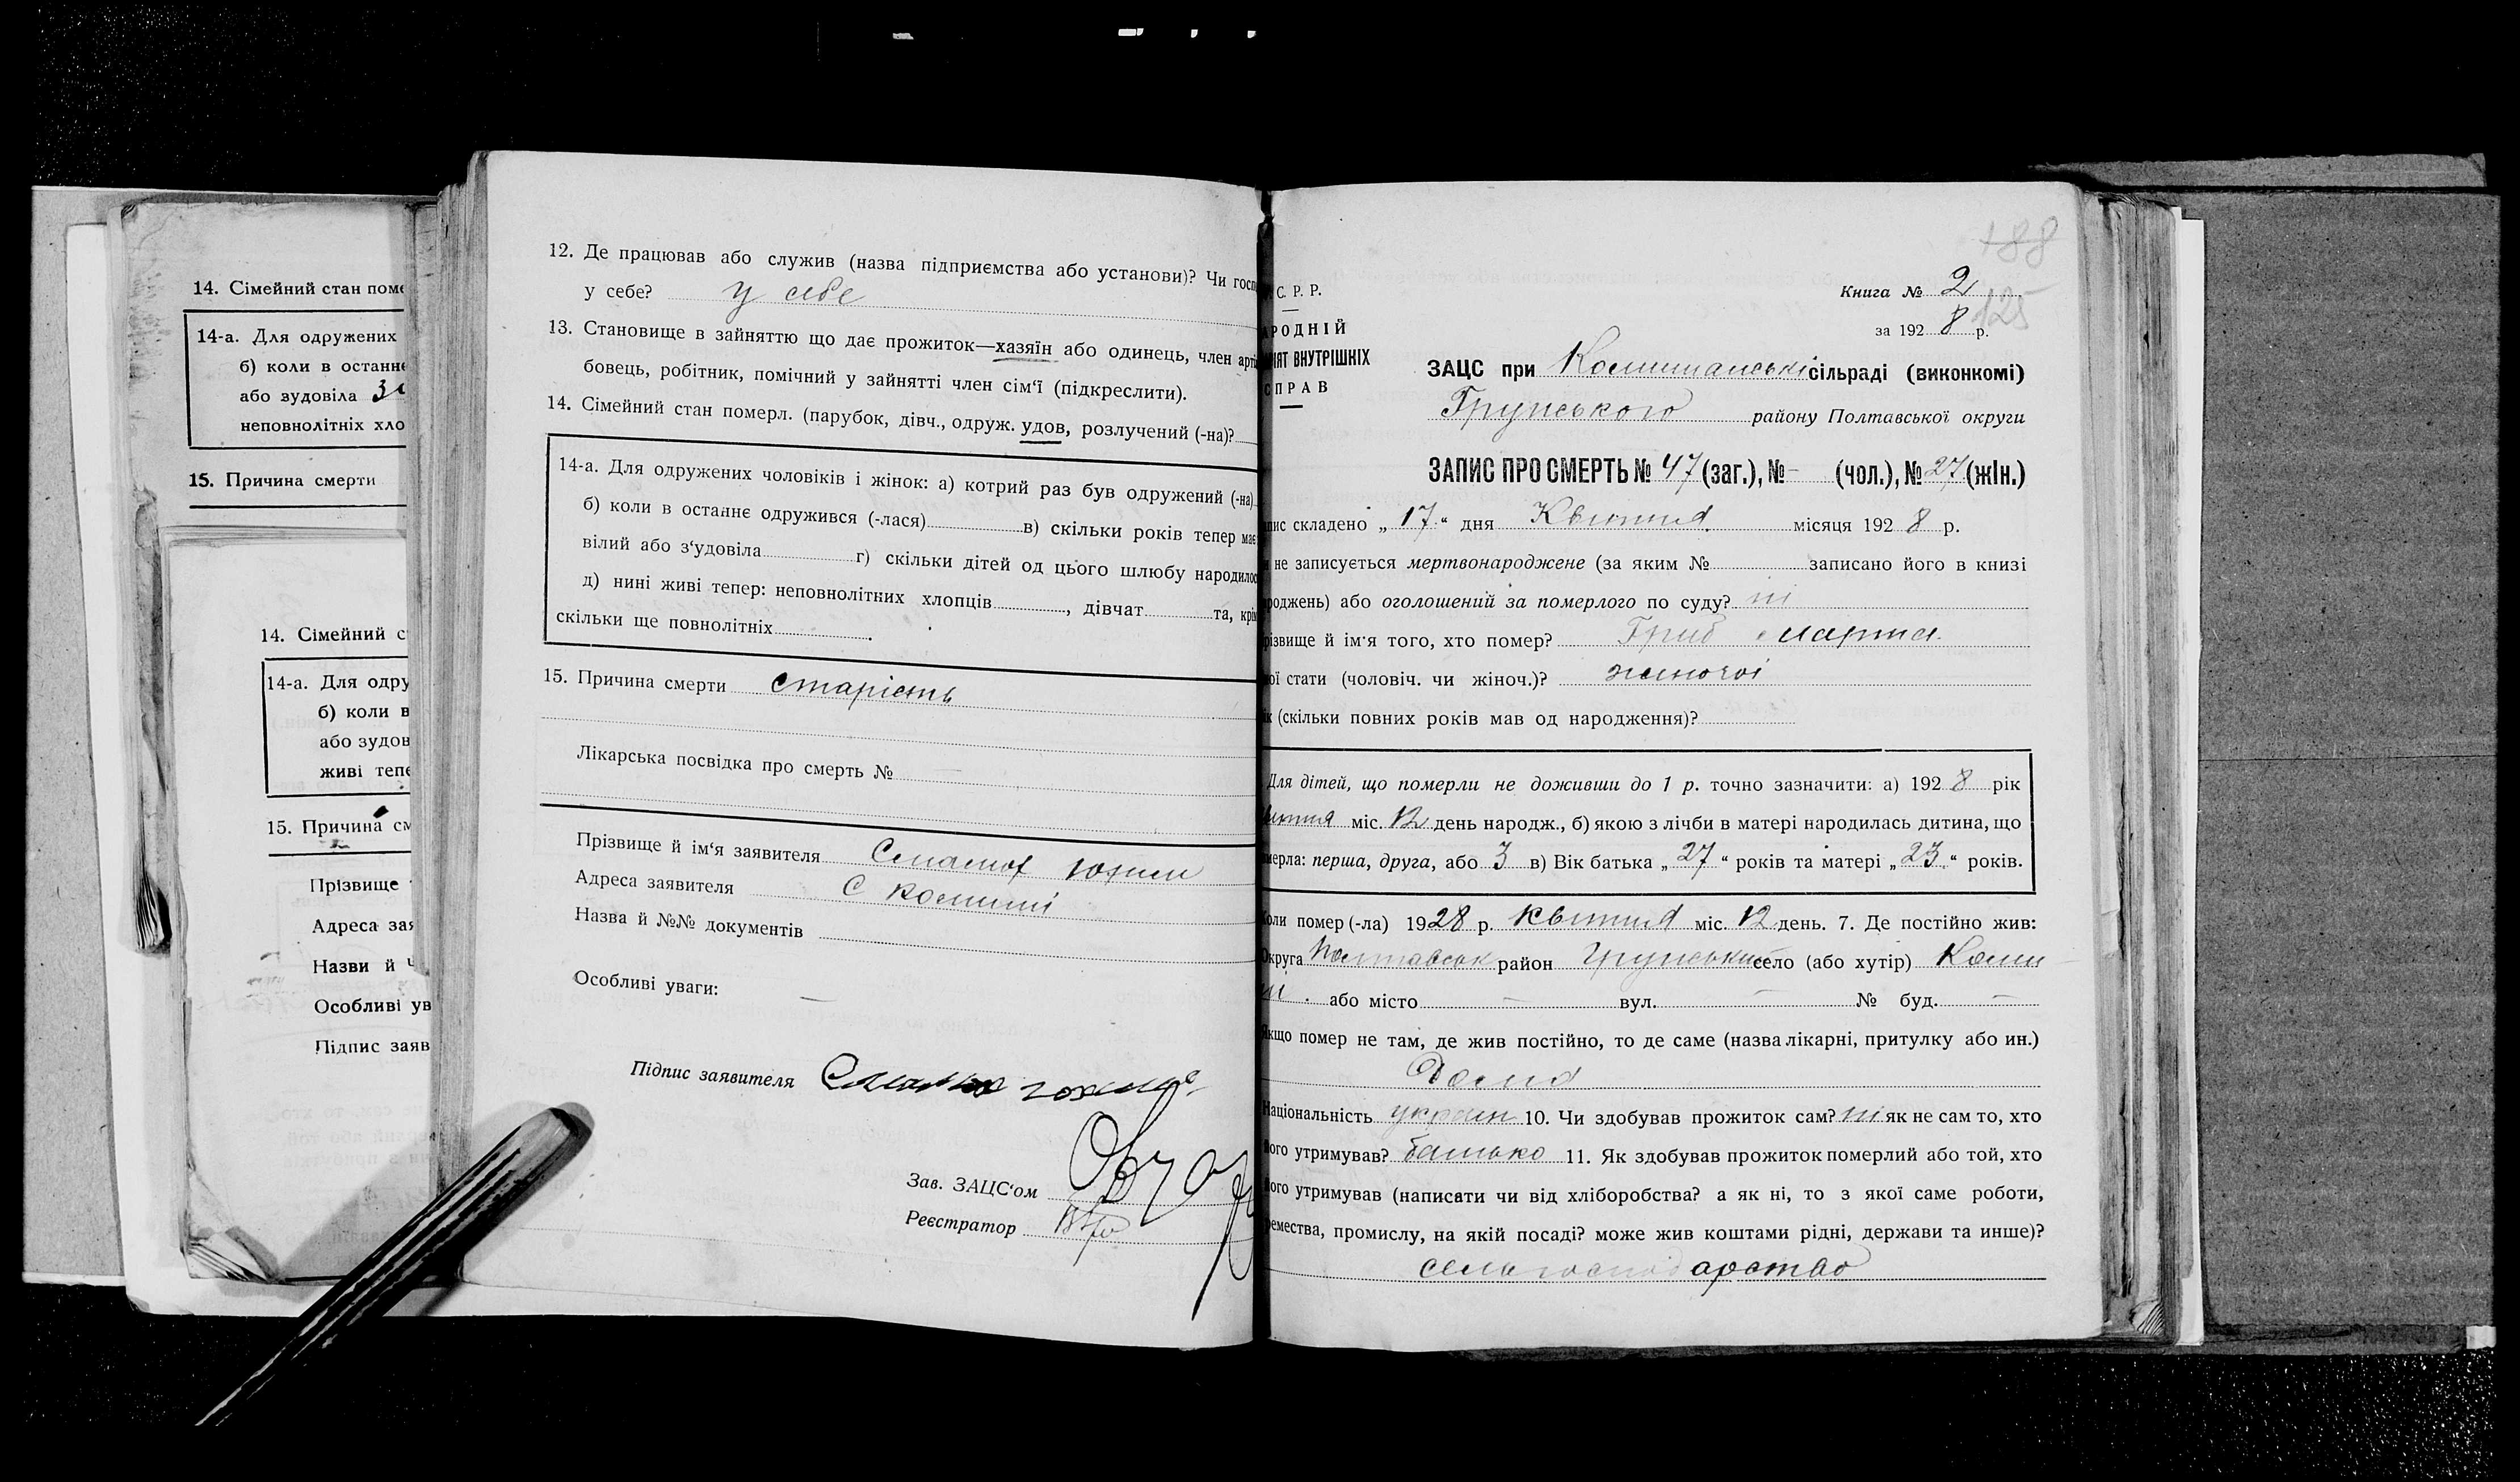 14. Сімейний стан поме
14-а. Для одружених
б) коли в останнє
або зудовіла
неповнолітніх хло
15. Причина смерти
14. Сімейний с
14-а. Для одру
б) коли в
або зудов
живі тепе
15. Причина см
Прізвище
Адреса зая
Назви й
Особливі ув
Підпис заяв
12. Де працював або служив (назва підприємства або установи)? Чи госп
у себе? у себе
13. Становище в зайняттю що дає прожиток—хазяїн або одинець, член арті
бовець, робітник, помічний у зайнятті член сім‘ї (підкреслити).
14. Сімейний стан померл. (парубок, дівч., одруж. удов, розлучений (-на)?
14-а. Для одружених чоловіків і жінок: а) котрий раз був одружений (-на)
б) коли в останнє одружився (-лася) в) скільки років тепер має
вілий або з‘удовіла г) скільки дітей од цього шлюбу народилос
д) нині живі тепер: неповнолітних хлопців , дівчат та, крім
скільки ще повнолітніх .
15. Причина смерти старість
Лікарська посвідка про смерть № —
Прізвище й ім‘я заявителя
Адреса заявителя С
Назва й №№ документів
Особливі уваги: —
Підпис заявителя
Зав. ЗАЦС‘ом
Реєстратор
188
125
С. Р. Р.
АРОДНІЙ
ІЯТ ВНУТРІШНІХ
СПРАВ
Книга № 2
за 192 8 р.
ЗАЦС при сільраді (виконкомі)
Грунського району Полтавської округи
ЗАПИС ПРО СМЕРТЬ № 47 (заг.), № - (чол.), № 27 (жін.)
пис складено „ 17 “ дня Квітня місяця 192 8 р.
и не записується мертвонароджене (за яким № записано його в книзі
роджень) або оголошений за померлого по суду? ні
різвище й ім‘я того, хто помер? Гриб Мария
кої стати (чоловіч. чи жіноч.)? жіночої
ік (скільки повних років мав од народження)?
Для дітей, що померли не доживши до 1 р. точно зазначити: а) 192 8 рік
вітня міс. 12 день народж., б) якою з лічби в матері народилась дитина, що
мерла: перша, друга, або 3 в) Вік батька „ 27 “ років та матері „ 23 “ років.
Коли помер (-ла) 1928 р. Квітня міс. 12 день. 7. Де постійно жив:
Округа Полтавськ район Грунський село (або хутір) Коми
ші . або місто — вул. — № буд. —
Якщо помер не там, де жив постійно, то де саме (назва лікарні, притулку або ин.)
Дома
Національність україн 10. Чи здобував прожиток сам? ні як не сам то, хто
його утримував? батько 11. Як здобував прожиток померлий або той, хто
його утримував (написати чи від хліборобства? а як ні, то з якої саме роботи,
ремества, промислу, на якій посаді? може жив коштами рідні, держави та инше)?
сельгосподарство